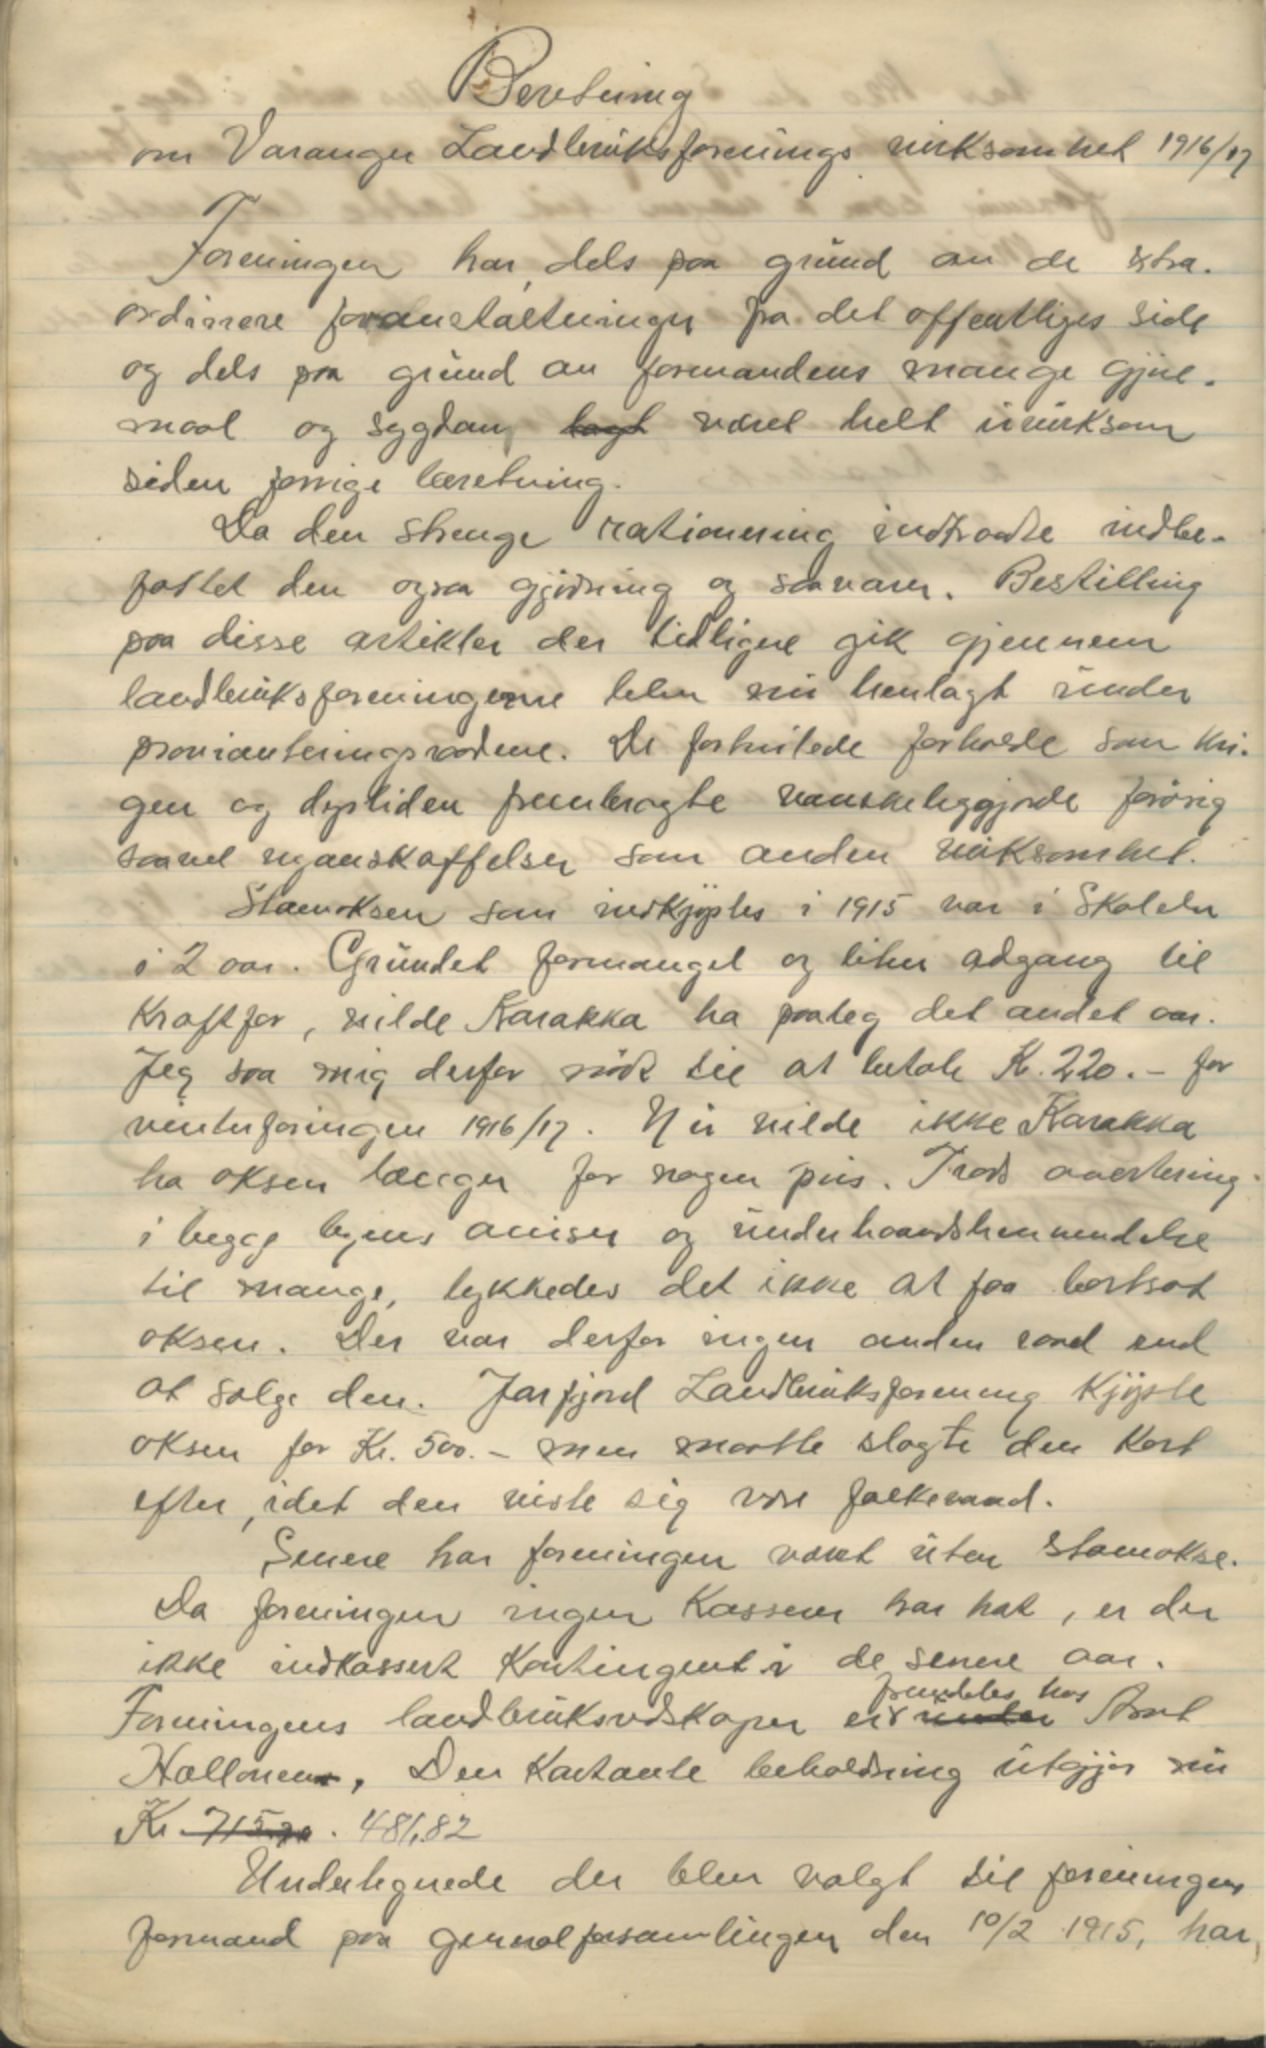 Beretning
om Varanger Landbruksforenings virksomhet 1916/17
Foreningen har, dels paa grund av de xtra-
ordinære foranstaltninger fra det offentliges side
og dels paa grund av formandens mange gjøre-
maal og sygdom, været helt uvirksom
siden forrige beretning.
Da den strenge rationering indtraadte indbe-
fattet den ogsaa gjødning og saavarer. Bestilling
paa disse artikler der tidligere gik gjennem
landbruksforeningerne blev nu henlagt under
provianteringsraadene. De forhvilede forholde som kri-
gen og dyrtiden frembragte vanskeliggjorde forøvrig
saavel nyanskaffelser som anden virksomhet.
Stamoksen som indkjøptes i 1915 var i Skalelv
i 2 aar. Grundet formangel og liten adgang til
Kraftfor, vilde Karakka ha paaleg det andet aar.
Jeg saa mig derfor nødt til at betale Kr. 220.- for
vinterforingen 1916/17. Nu vilde ikke Karakka
ha oksen længer for nogen pris. Trods avertering
i begge byens aviser og underhaandshenvendelse
til mange, lykkedes det ikke at faa bortsat
oksen. Der var derfor ingen anden raad end
at sælge den. Jarfjord Landbruksforening Kjøpte
oksen for Kr. 500.- men maatte slagte den kort
efter, idet den viste sig være folkevand.
Senere har foreningen været uten stamokse.
Da foreningen ingen Kasserer har hat, er der
ikke indkassert Kontingent i de senere aar.
fremdeles hos
Foreningens landbruksredskaper er under Arnt
Hallonen, Den Kontante beholdning utgjør nu
Kr. 715.70. 481,82
Undertegnede der blev valgt til foreningens
formand paa generalforsamlingen den 10/2 1915, har,